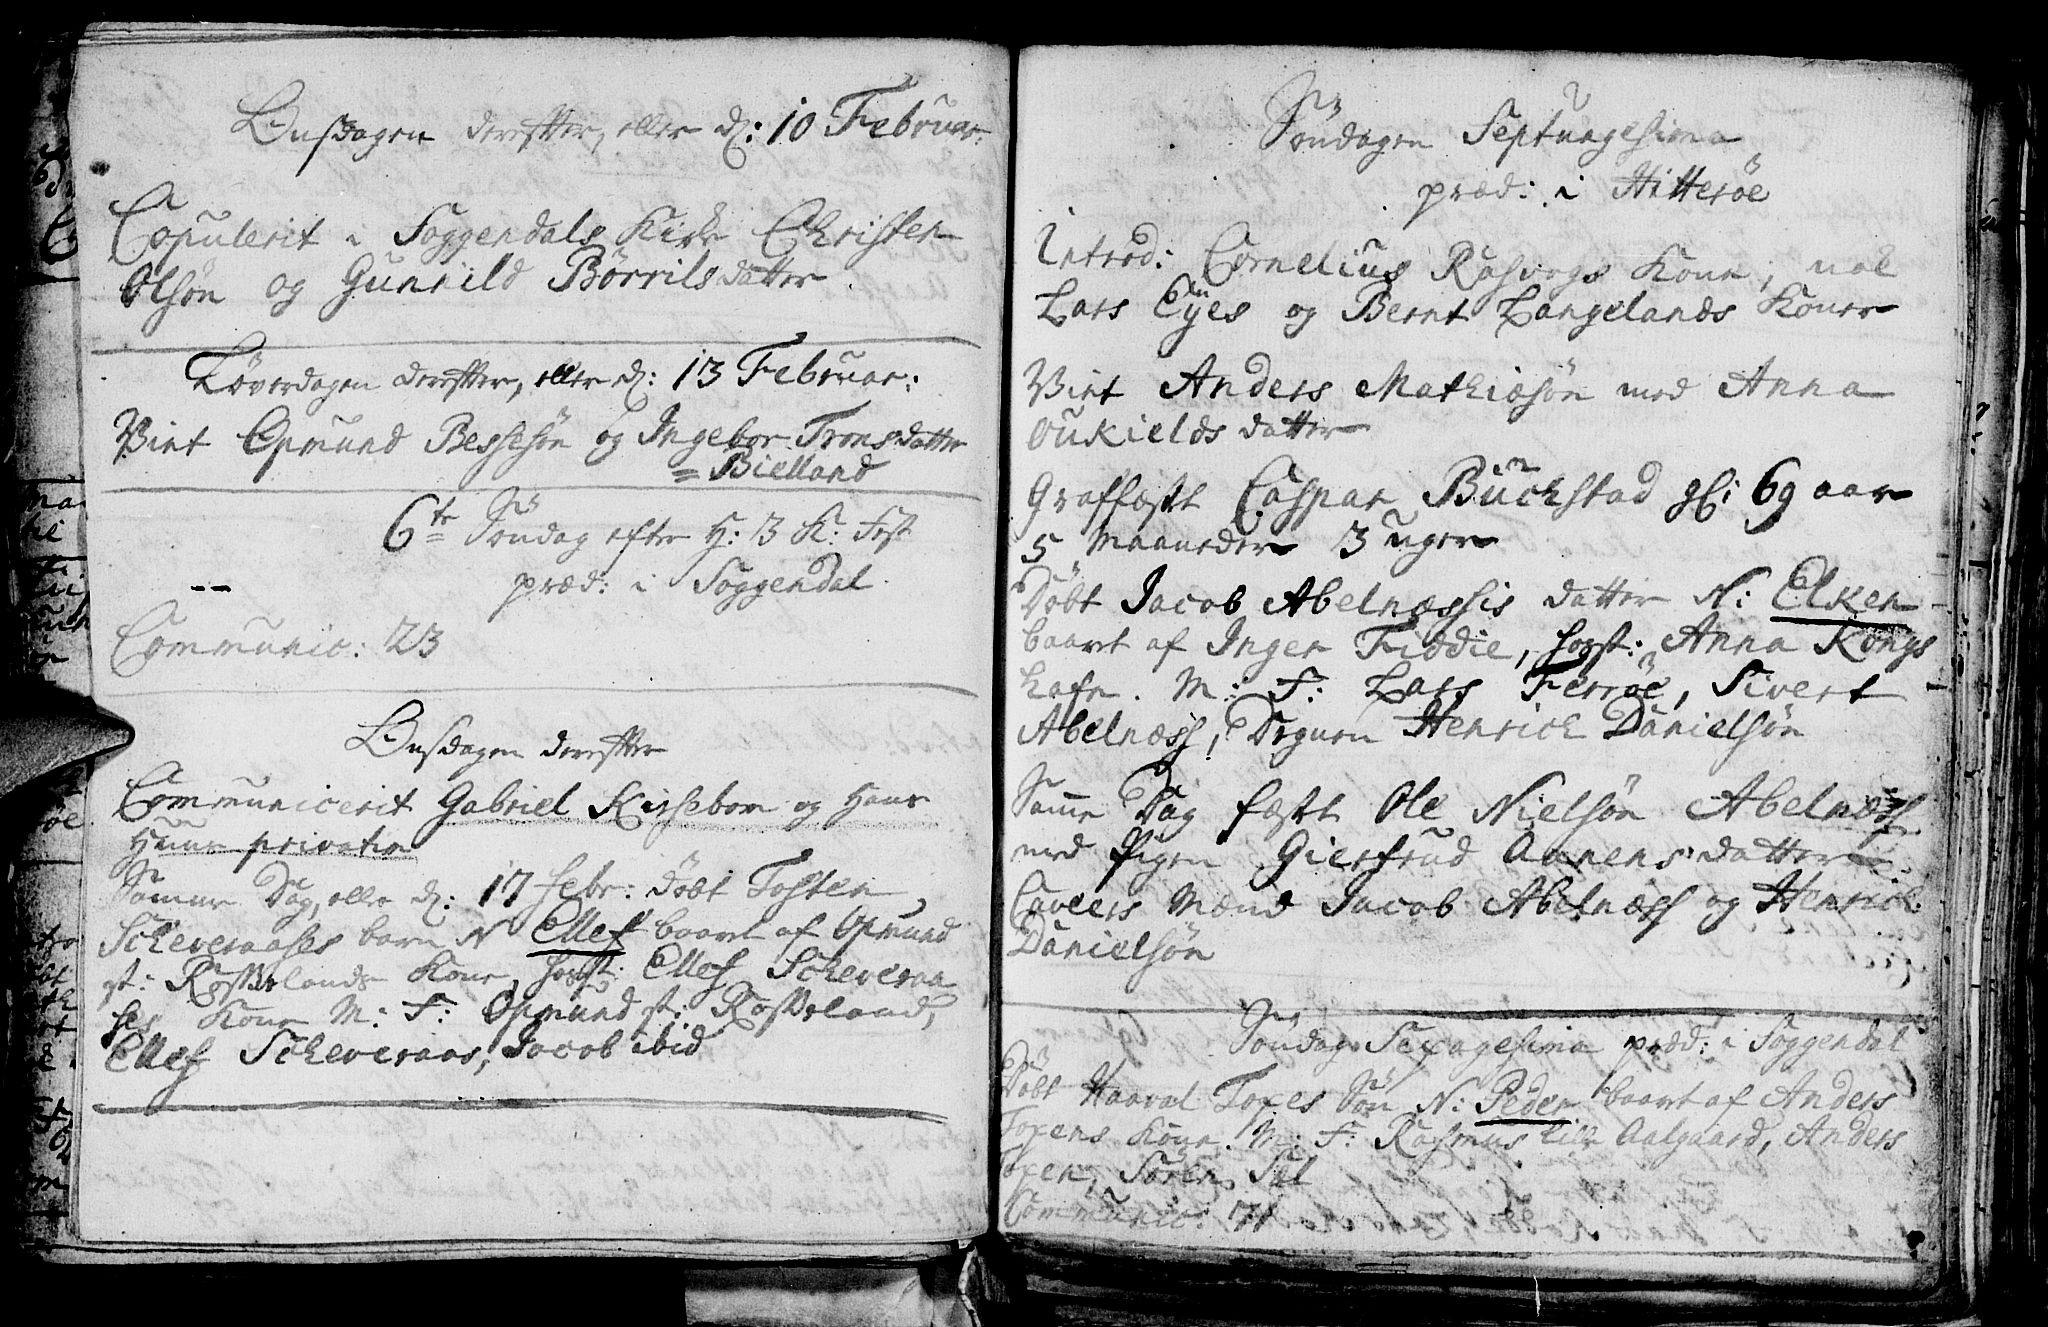 Onsdagen derefter, eller d: 10 Februar:
Copulerit i Soggendals Kirke Christen
Olsøn og Gunnild Børrilsdatter
Løverdagen derefter, eller d: 13 Februar:
Viet Ogmund Bessesøn og Ingebor Tronsdatter
= Bielland
6te Søndag efter H: 3 K: Fest
præd: i Soggendal
Communic: 23
Onsdagen derefter
Communicerit Gabriel Kirsebom og Hans
Huus privatim
Samme Dag, eller d: 17 Febr: døbt Tosten
Scheveraases barn N Ellef baaret af Ogmund
st: Rosselands Kone, Hosst: Ellef Scheveraa
ses Kone M: F: Ogmund st: Rosseland,
Ellef Scheveraas, Jacob ibid
Søndagen Septuagesima
præd: i Hitterøe
Introd: Cornelius Rasvogs Kone, nok
Lars Eyes og Bernt Langelands Koner
Viet Anders Mathiæsøn med Anna
Oukields datter
Graffæstt Caspar Buchstad gl: 69 aar
5 Maaneder 3 uger
Døbt Jacob Abelnæssis datter N: Elken
baaret af Inger Fidie, Hosst: Anna Kongs
hafn. M: F: Lars Ferrøe, Sivert
Abelnæss, Degnen Henrich Danielsøn
Samme Dag fæstt Ole Nielsøn Abelnæss
med Pigen Giertrud Aanens datter
Caveers Mænd Jacob Abelnæss og Henrich
Danielsøn
Søndag Sexagesima præd: i Soggendal
Døbt Haaval Toxes Søn N: Peder baaret af Anders
Toxens Kone. M: F: Rasmus lille Aalgaard, Anders
Toxen, Søren Sæl
Communic: 71